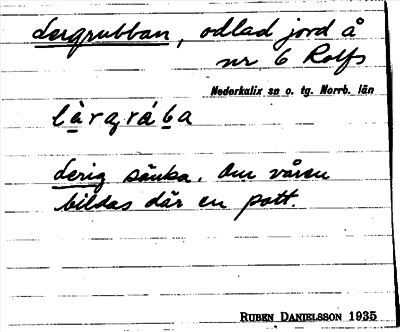 Lergrubban, odlad jord å
nr 6 Rolfs
Nederkalix sn o. tg. Norrb. län
làrgrába
Lerig sänka. Om våren
bildas där en pott.
RUBEN DANIELSSON 1935